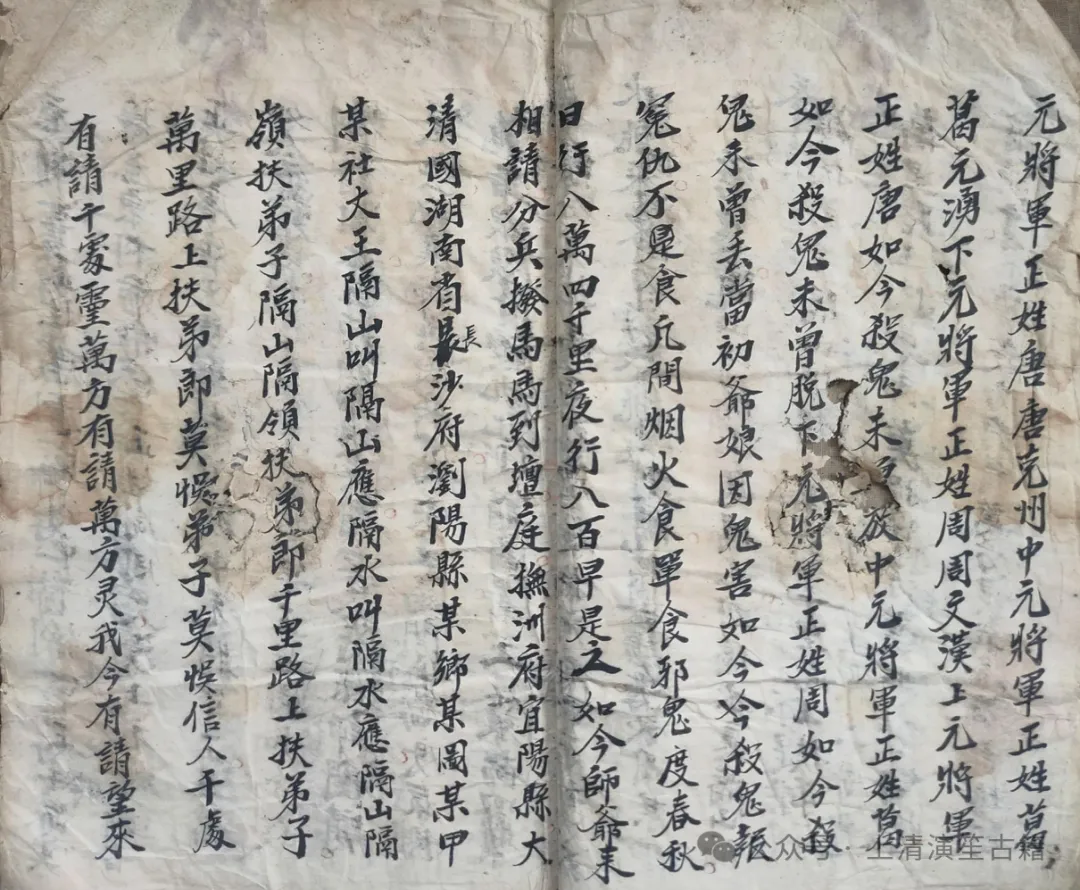 元將軍正姓唐唐克州中元將軍正姓葛
葛元湧下元將軍正姓周周文漢上元將軍
正姓唐如今殺鬼未放中元將軍正姓葛
如今殺鬼未曾脫下元將軍正姓周如今殺
鬼未曾丢當初爺娘因鬼害如今今殺鬼報
冤仇不是食凢間烟火食單食邪鬼度春秋
日行八萬四千里夜行八百早是之如今師爺来
相請分兵撥馬馬到壇庭撫洲府宜陽縣大
清國湖南省長沙府瀏陽縣某鄉某圖某甲
某社大王隔山叫隔山應隔水叫隔水應隔山隔
嶺扶弟子隔山隔領扶弟郎千里路上扶弟子
萬里路上扶弟郎莫悞弟子莫悞信人千處
有請千處靈萬方有請萬方灵我今有請望來
長
众号·上清演笙古籍